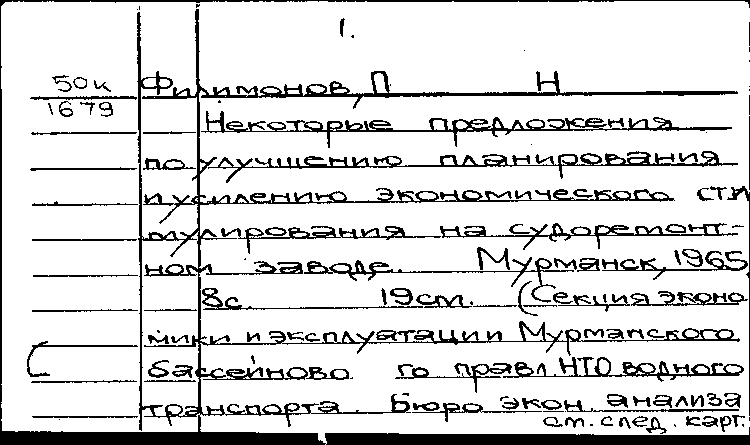 1.
50к
1679
Филимонов, П Н
Некоторые предложения
по улучшению планирования
и усилению экономического сти
мулирования на судоремонт-
ном заводе. Мурманск, 1965
8с. 19см. (Секция эконо
мики и эксплуатации Мурманского
бассейново го правл. НТО водного
транспорта. Бюро экон. анализа
см. след. карт.